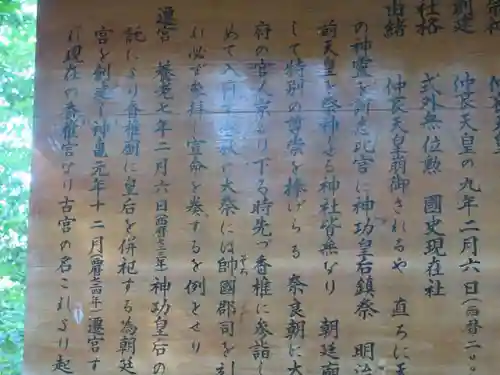 仲哀天皇
創建　仲哀天皇の九年二月六日(西暦二〇
社格　式外無位勲　國史現在社
由緒　仲哀天皇崩御されるや　直ちに
の神霊を　此宮に神功皇后鎮祭　明治
前天皇を祭神とる神社皆無なり　朝廷
して特別の尊崇を捧げらる　奈良朝に大
府の官人京より下る時先づ香椎に参詣し
めて入　大祭には帥國郡司を
に必ず参拝し宣命を奏するを例とせり
遷宮　養老七年二月六日(西暦七二三年)神功皇后の
託により香椎廟に皇后を併祀する為朝廷
宮を創建し神亀元年十二月(西暦七二四年)遷宮す
に現在の香椎宮なり古宮の名これより起